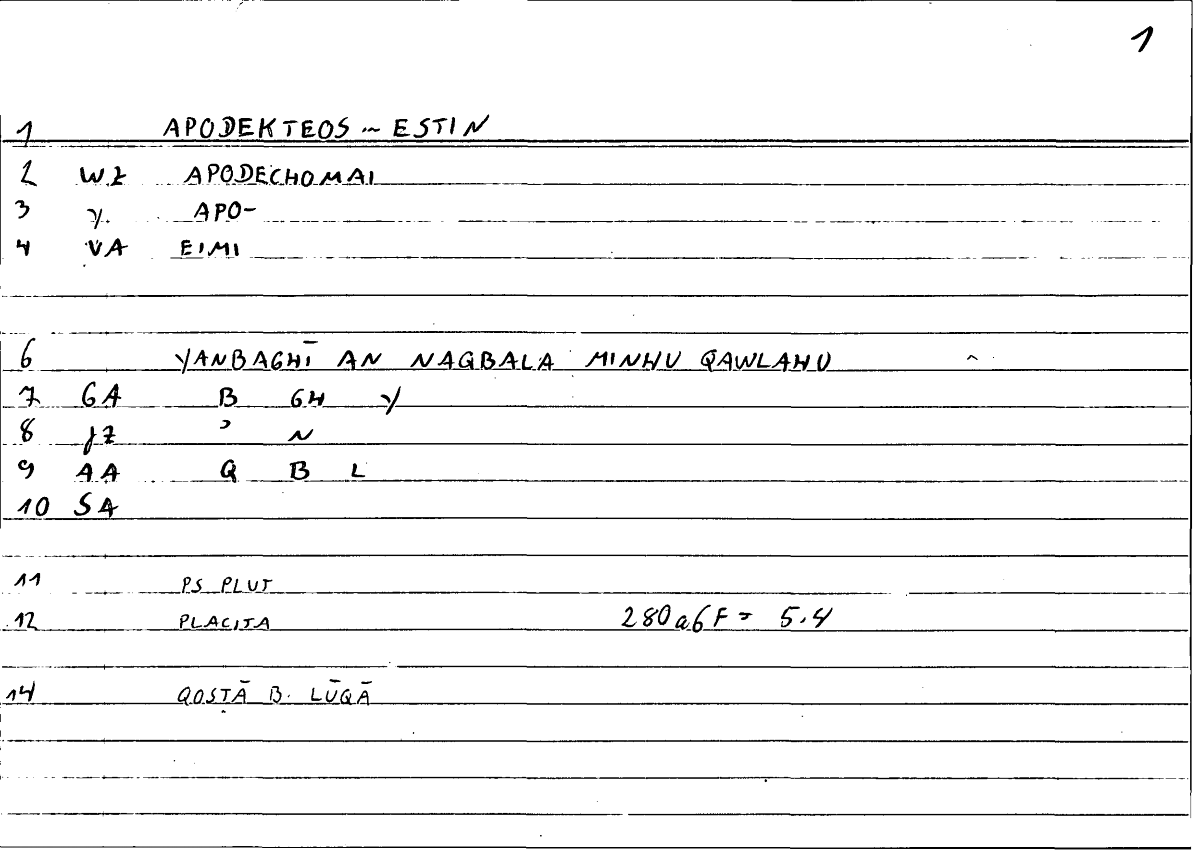 1
1 APODEKTEOS ~ ESTIN
2 WZ APODECHOMAI
3 y. APO-
4 VA EIMI
6 YANBAGHĪ AN NAQBALA MINHU QAWLAHU
7 GA B GH Y
8 JZ ʾ N
9 AA Q B L
10 SA
11 PS PLUT
12 PLACITA 280a6F = 5.4
14 QOSṬĀ B. LŪQĀ